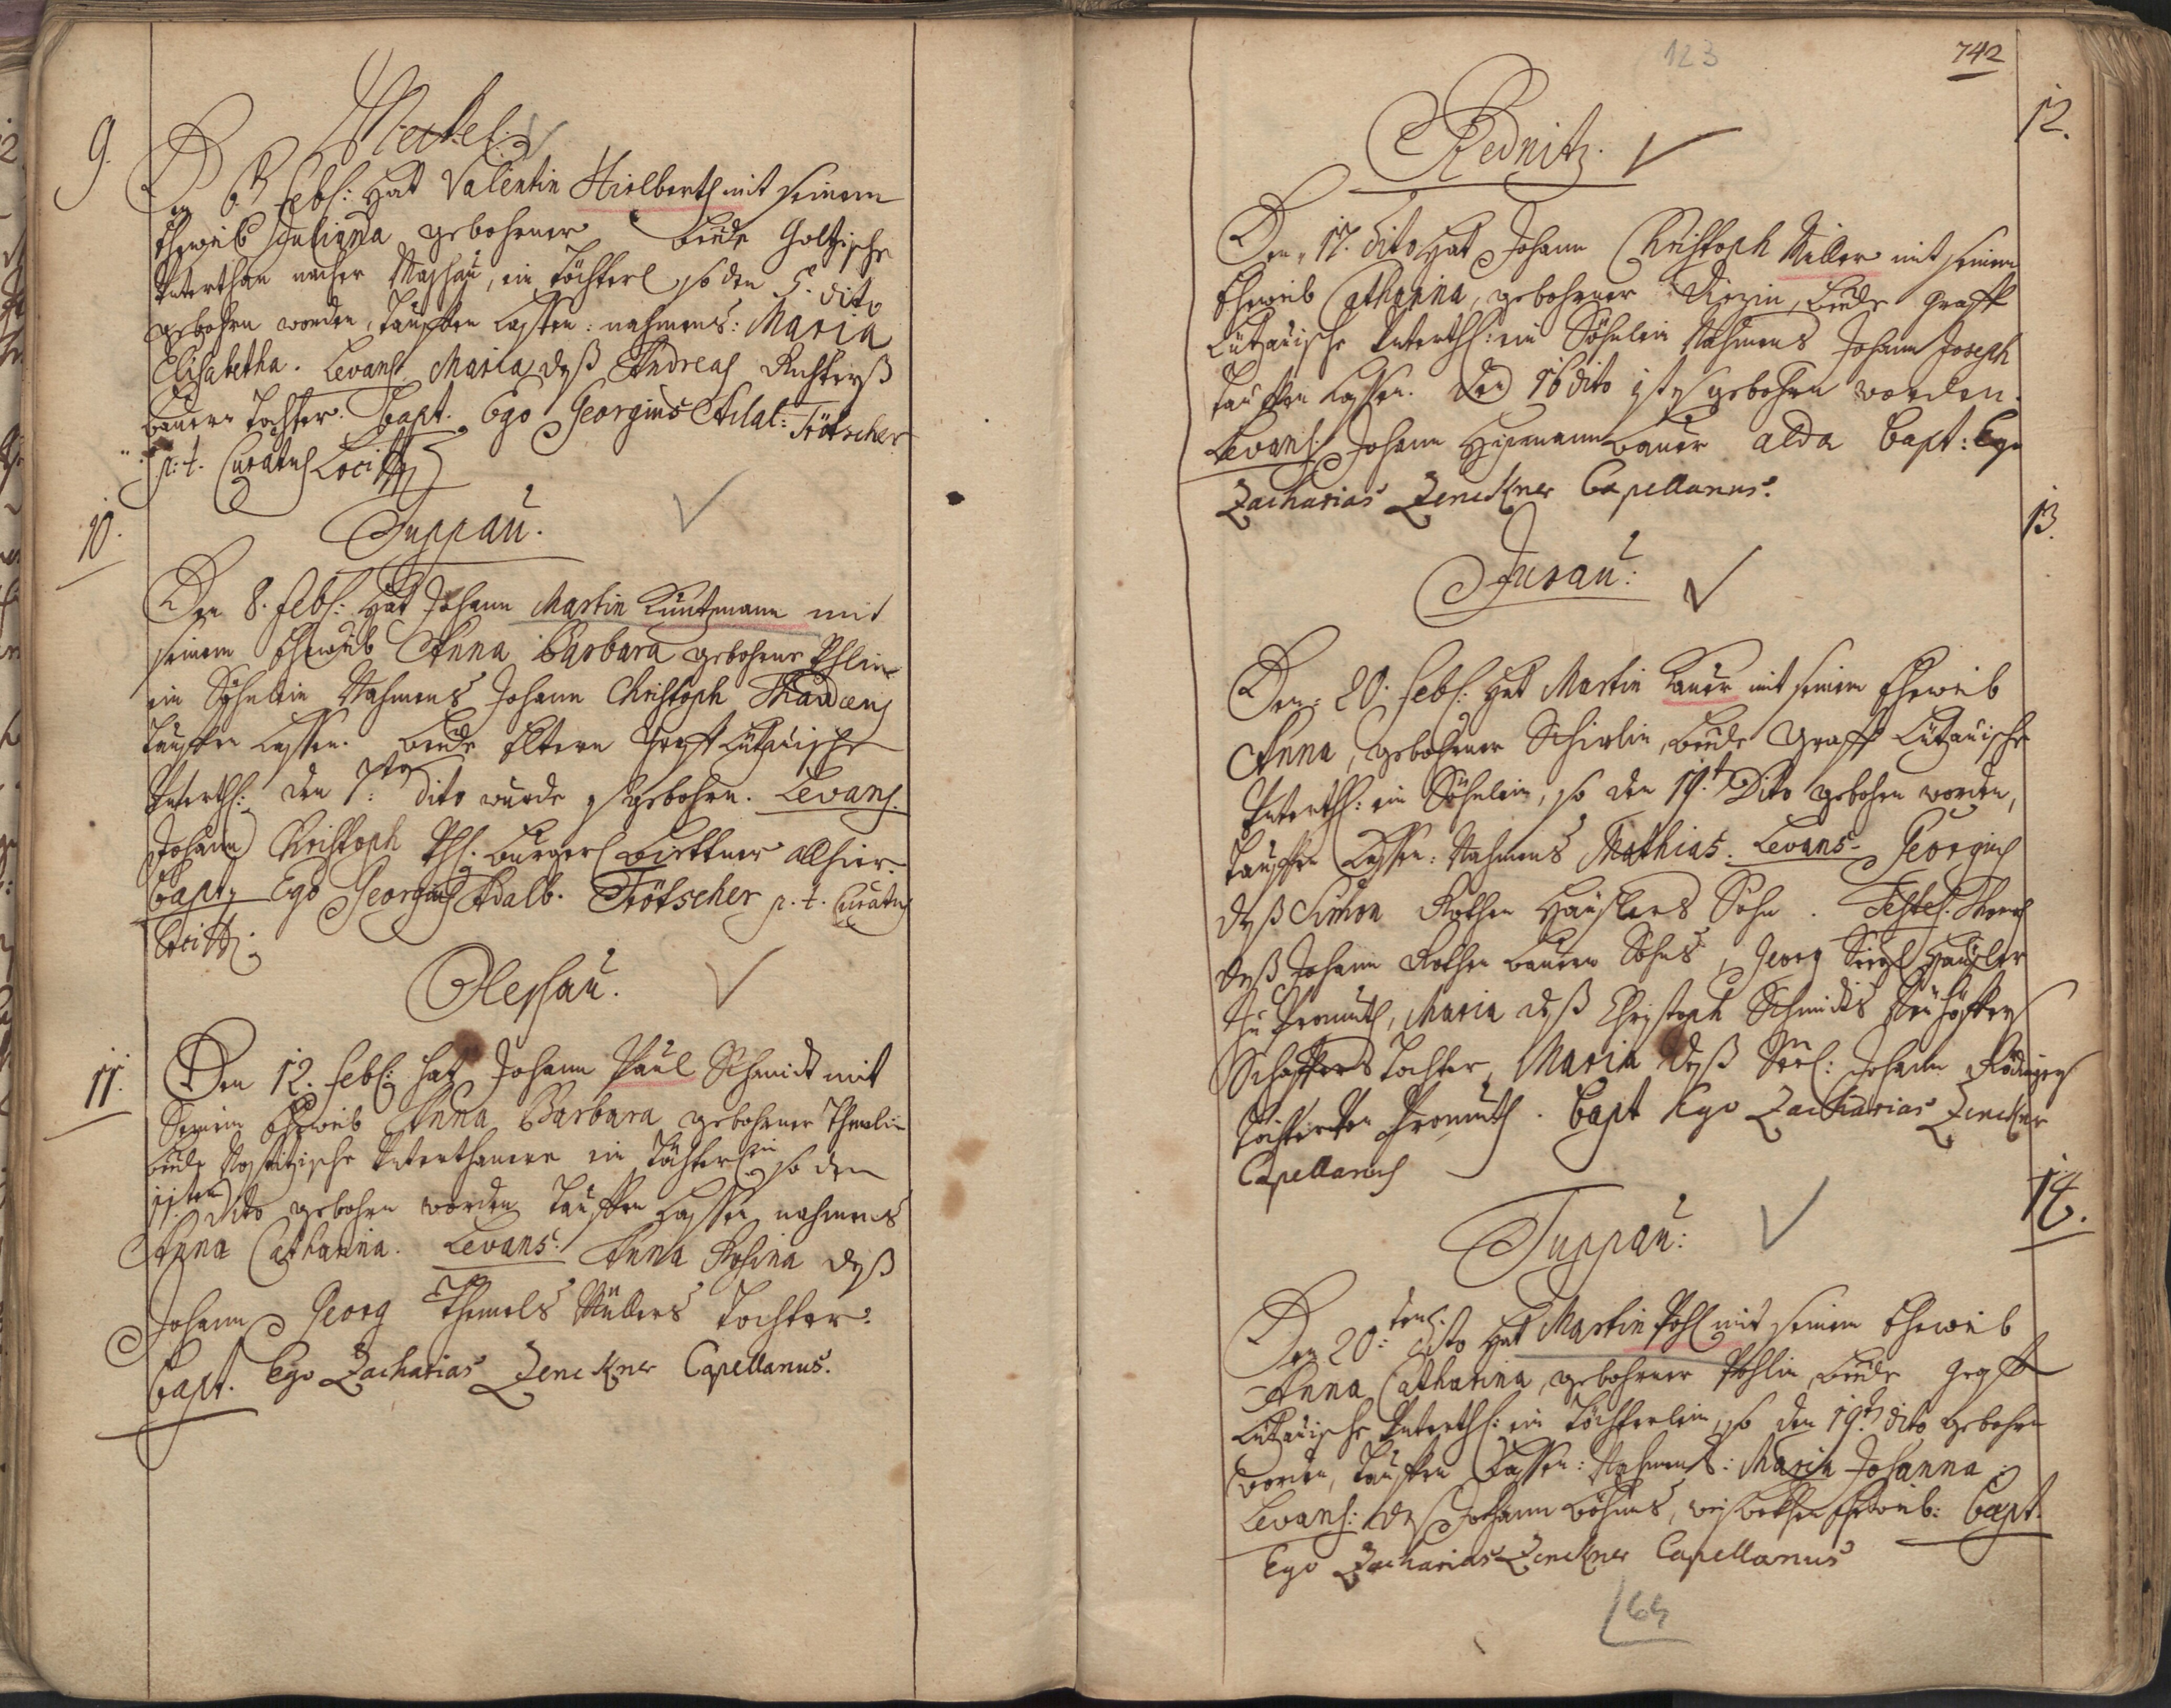 9.
Den 6t Febr: hat Valentin Hielberth mit seinem
Eheweib Juliana gebohrner beede Goltzische
Unterthan nacher Maschau, ein Töchterl so den 5. dito
gebohrn worden, tauffen lassen: nahmens: Maria
Elisabetha. Levans Maria deß Andreas Richterß
bauern tochter. Bapt. Ego Georgius Adal: Trötscher
p: t. Curatus Loci
10.
Duppau.
Den 8. Febr: hat Johann Martin Kuntzmann mit
seinem Eheweib Anna Barbara gebohrne
ein Söhnlein Nahmens Johann Christoph Thadæus
tauffen lassen. beede Eltern Graff Lützauische
Unterth: den 7: dito wurde es gebohrn. Levans.
Johann Christoph burgerl allhier.
Bapt Ego Georgius Adalb. Trötscher p. t. Curatus
Loci
Olleschau.
11.
Den 12. Febr: hat Johann Paul Schmidt mit
Seinem Eheweib Anna Barbara gebohrner
beede Nostitzische Unterthanen ein Töchterlein so den
11ten dito gebohrn worden tauffen lassen nahmens
Anna Catharina. Levans: Anna Rosina deß
Johann Georg Themels Müllers tochter.
Bapt. Ego Zacharias Zenckner Capellanus.
123
742
12.
Rednitz.
Den 17. dito hat Johann Christoph Miller mit seinem
Eheweib Catharina, gebohrner beede Graff
Lützauische Unterth: ein Söhnlein Nahmens Johann Joseph
tauffen lassen. Den 16 dito ist es gebohrn worden.
Levans Johann bauer alda Bapt: Ego
Zacharias Zenckner Capellanus.
13.
Jurau:
Den: 20. Febr: hat Martin Lauer mit seinem Eheweib
Anna, gebohrner Schirlin, beede Graff Lützauische
Unterth: ein Söhnlein, so den 19t Dito gebohrn worden,
tauffen lassen: Nahmens Mathias. Levans Georgius
deß Simon Rothen Häuslers Sohn. Testes.
deß Johann Rothen bauern Sohns, Georg Häusler
zu Promuth, Maria deß Christoph Schmidts
Schaffers tochter, Maria deß Seel: Johann
tochter von Promuth. Bapt Ego Zacharias Zenckner
Capellanus
14.
Duppau:
Den 20: tens. dito hat Martin Pohl mit seinem Eheweib
Anna Catharina, gebohrner Pohlin, beede Graff
Lützauische Unterth: ein Töchterlein, so den 19t dito gebohrn
worden, tauffen lassen: Nahmens: Maria Johanna:
Levans: deß Johann Böhms, Eheweib: Bapt.
Ego Zacharias Zenckner Capellanus